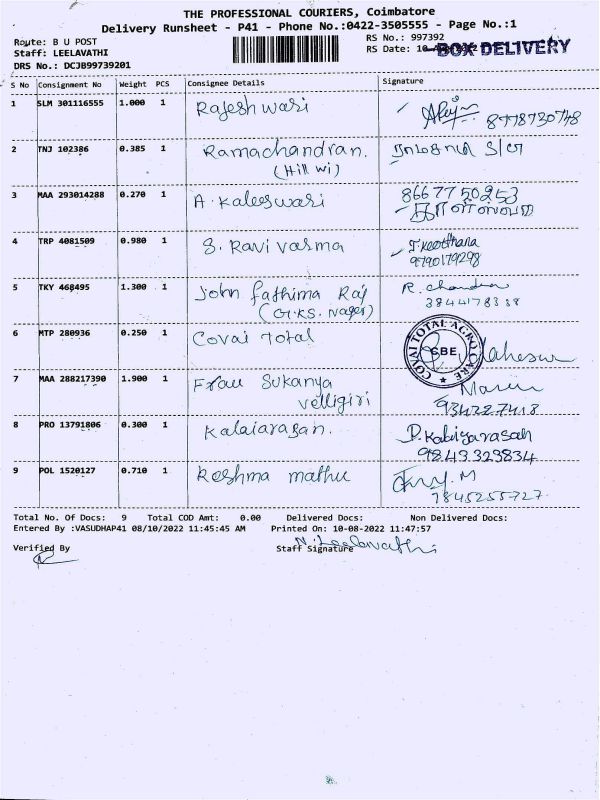 THE PROFESSIONAL COURIERS, Coimbatore
Delivery Runsheet - P41 - Phone No.:0422-3505555 - Page No.:1
Route: B U POST
RS No.: 997392
Staff: LEELAVATHI
RS Date: 10-
BOX DELIVERY
DRS No.: DCJB99739201
S No Consignment No Weight PCS Consignee Details Signature
1 SLM 301116555 1.000 1 Rajeshwari 8778730748
2 TNJ 102386 0.385 1 Ramachandran. S/o
(Hill wi)
3 MAA 293014288 0.270 1 A. Kaleeswari 8667750253
4 TRP 4081509 0.980 1 S. Ravi varma J. Keerthana
9790179298
5 TKY 468495 1.300 1 John fathima Raj R. chandra
(G.K.S. Nager) 3844178338
6 MTP 280936 0.250 1 Covai Total Maheswa
COVAI TOTAL AGRO CARE
CBE
7 MAA 288217390 1.900 1 Frau Sukanya
velligiri 934227418
8 PRO 13791806 0.300 1 Kalaiarasan. D. Kabiyarasan
9843329834
9 POL 1520127 0.710 1 Reshma mathu
7845255727
Total No. Of Docs: 9 Total COD Amt: 0.00 Delivered Docs: Non Delivered Docs:
Entered By :VASUDHAP41 08/10/2022 11:45:45 AM Printed On: 10-08-2022 11:47:57
Verified By Staff Signature N. Leelavathi